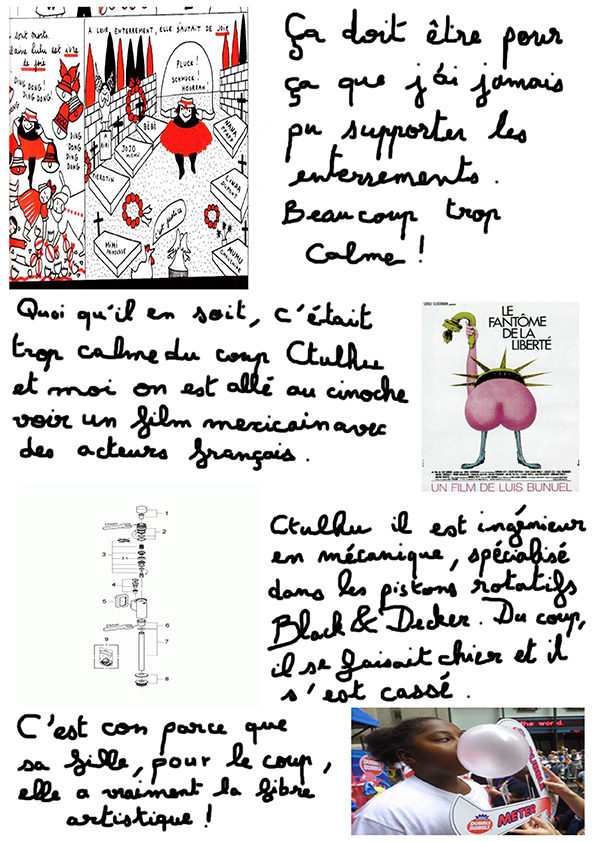 A LEUR ENTERREMENT, ELLE SAUTAIT DE JOIE
DING DONG!
DING DONG!
DING DONG
DING DONG
PLUCK!
SCHMUCK!
HOURRAH!
BÉBÉ
JOJO
MICHU
MIMI
Ça doit être pour
ça que j'ai jamais
pu supporter les
enterrements.
Beaucoup trop
calme !
Quoi qu'il en soit, c'était
trop calme du coup Ctulhu
et moi on est allé au cinoche
voir un film mexicain avec
des acteurs français.
LE
FANTÔME
DE LA
LIBERTÉ
UN FILM DE LUIS BUNUEL
1
2
3
3.1
4
5
6
7
8
9
Ctulhu il est ingénieur
en mécanique, spécialisé
dans les pistons rotatifs
Black & Decker. Du coup,
il se faisait chier et il
s'est cassé.
C'est con parce que
sa fille, pour le coup,
elle a vraiment la fibre
artistique !
the world.
DUBBLE
BUBBLE
METER